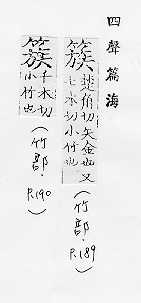 四聲篇海
簇楚角切矢金也又
七木切小竹也
(竹部.P.189)
簇千木切
小竹也
(竹部.P.190)